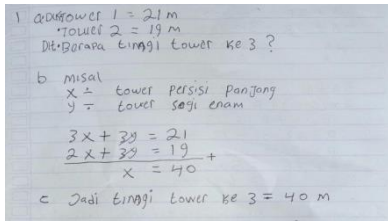 1 a. Dik tower 1 = 21 m
• Tower 2 = 19 m
Dit • Berapa tinggi tower ke 3 ?
b misal
x = tower persisi panjang
y = tower segi enam
3x + 3y = 21
2x + 3y = 19 +
x = 40
c Jadi tinggi tower ke 3 = 40 m